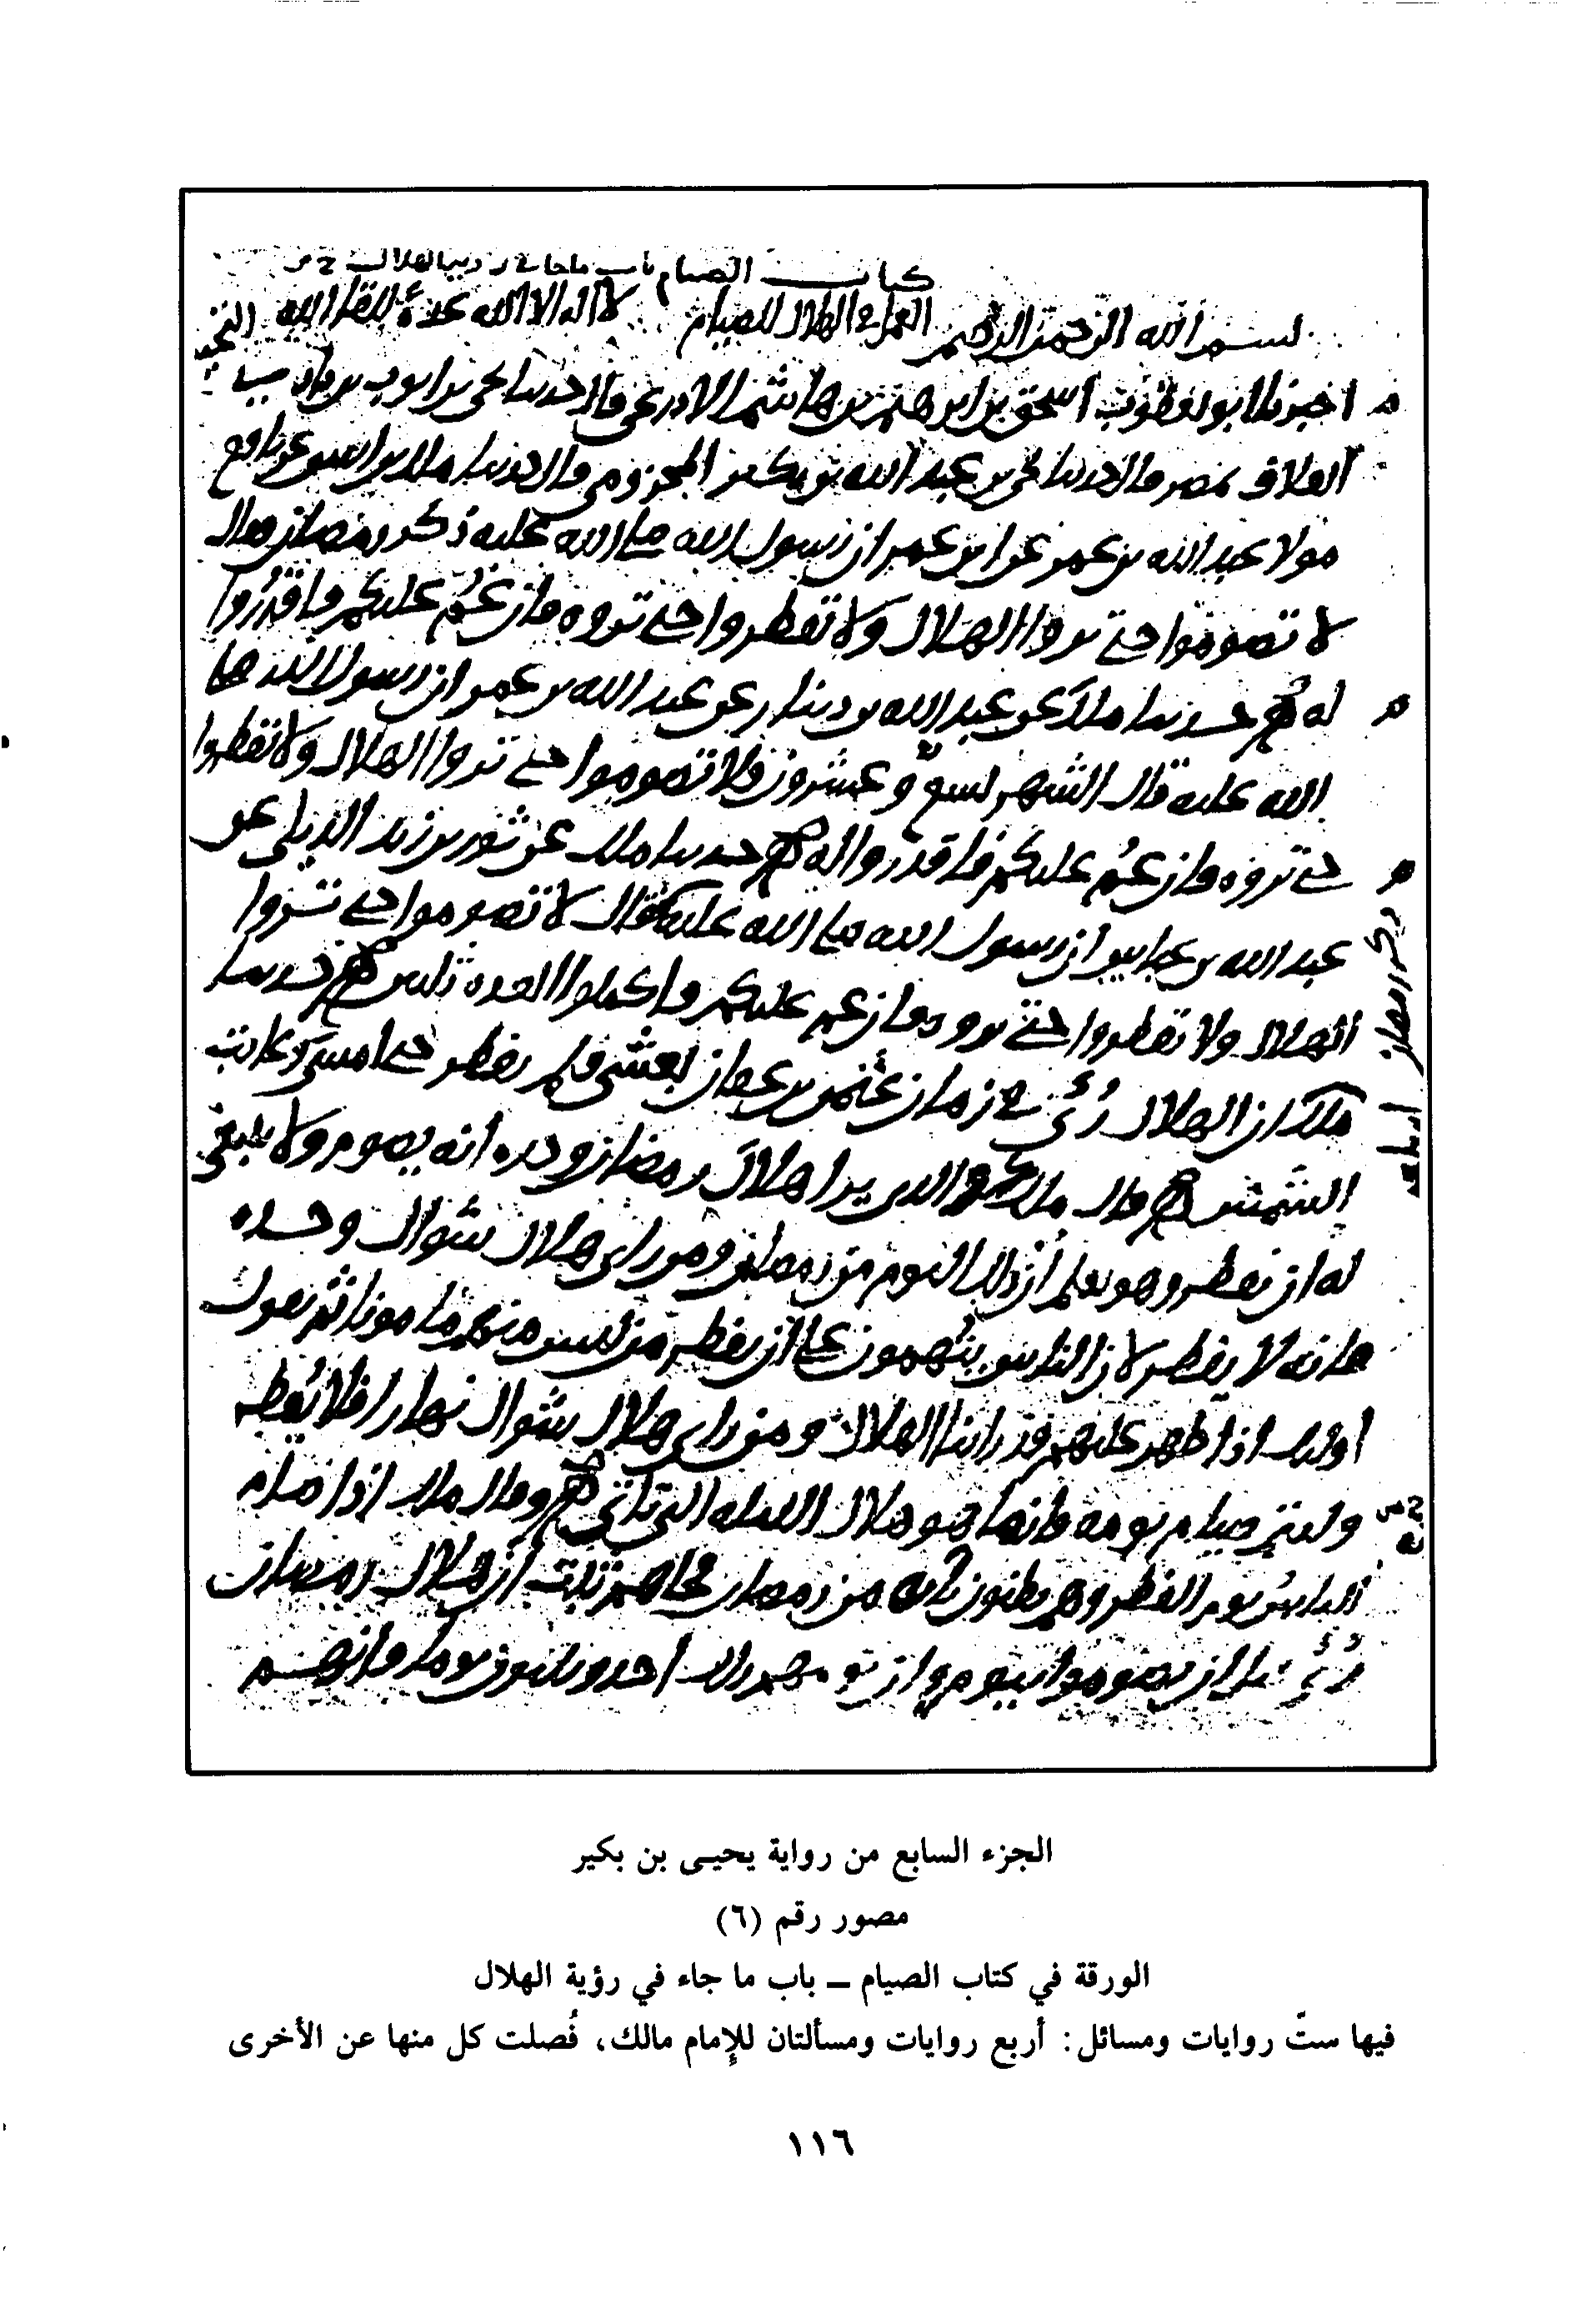 كتاب الصيام باب ماجا في روية الهلال
بسم الله الرحمن الرحيم العمل في الهلال للصيام لا اله الا الله عدة للقا الله
اخبرنا ابو يعقوب اسحق بن ابرهيم بن هاشم الادرعي قال حدثنا يحي بن ايوب بن بادي
العلاف بمصر قال حدثنا يحي بن عبد الله بن بكير المخزومي قال حدثنا ملك بن انس عن نافع
مولا عبد الله بن عمر عن ابن عمر ان رسول الله صلى الله عليه ذكر رمضان فقال
لا تصوموا حتى تروا الهلال ولا تفطروا حتى تروه فان غم عليكم فاقدروا
له حدثنا ملك عن عبد الله بن دينار عن عبد الله بن عمر ان رسول الله صلى
الله عليه قال الشهر تسع وعشرون فلا تصوموا حتى تروا الهلال ولا تفطروا
حتى تروه فان غم عليكم فاقدروا له حدثنا ملك عن ثور بن زيد الديلي عن
عبد الله بن عباس ان رسول الله صلى الله عليه قال لا تصوموا حتى تروا
الهلال ولا تفطروا حتى تروه فان غم عليكم فاكملوا العده ثلثين حدثنا
ملك ان الهلال رئي في زمان عثمن بن عفان بعشي فلم يفطر حتى امسى وغابت
الشمس قال ملك في الذي يرا هلال رمضان وحده انه يصوم ولا ينبغي
له ان يفطر وهو يعلم ان ذلك اليوم من رمضان ومن راى هلال شوال وحده
فانه لا يفطر لان الناس يتهمون على ان يفطر من ليس منهم مامونا ثم يقول
اوليك اذا ظهر عليهم قد راينا الهلال ومن راى هلال شوال نهارا فلا يفطر
وليتم صيام يومه فانما هو هلال الليله التي تاتي وقال ملك اذا صام
الناس يوم الفطر وهم يظنون بانه من رمضان فجاهم ثبت ان هلال رمضان
رئي قبل ان يصوموا بيوم وان يومهم ذلك احد وثلثون يوما فانهم
ذكر رمضان
الجزء السابع من رواية يحيى بن بكير
مصور رقم (٦)
الورقة في كتاب الصيام — باب ما جاء في رؤية الهلال
فيها ستّ روايات ومسائل: أربع روايات ومسألتان للإمام مالك، فُصلت كل منها عن الأخرى
١١٦